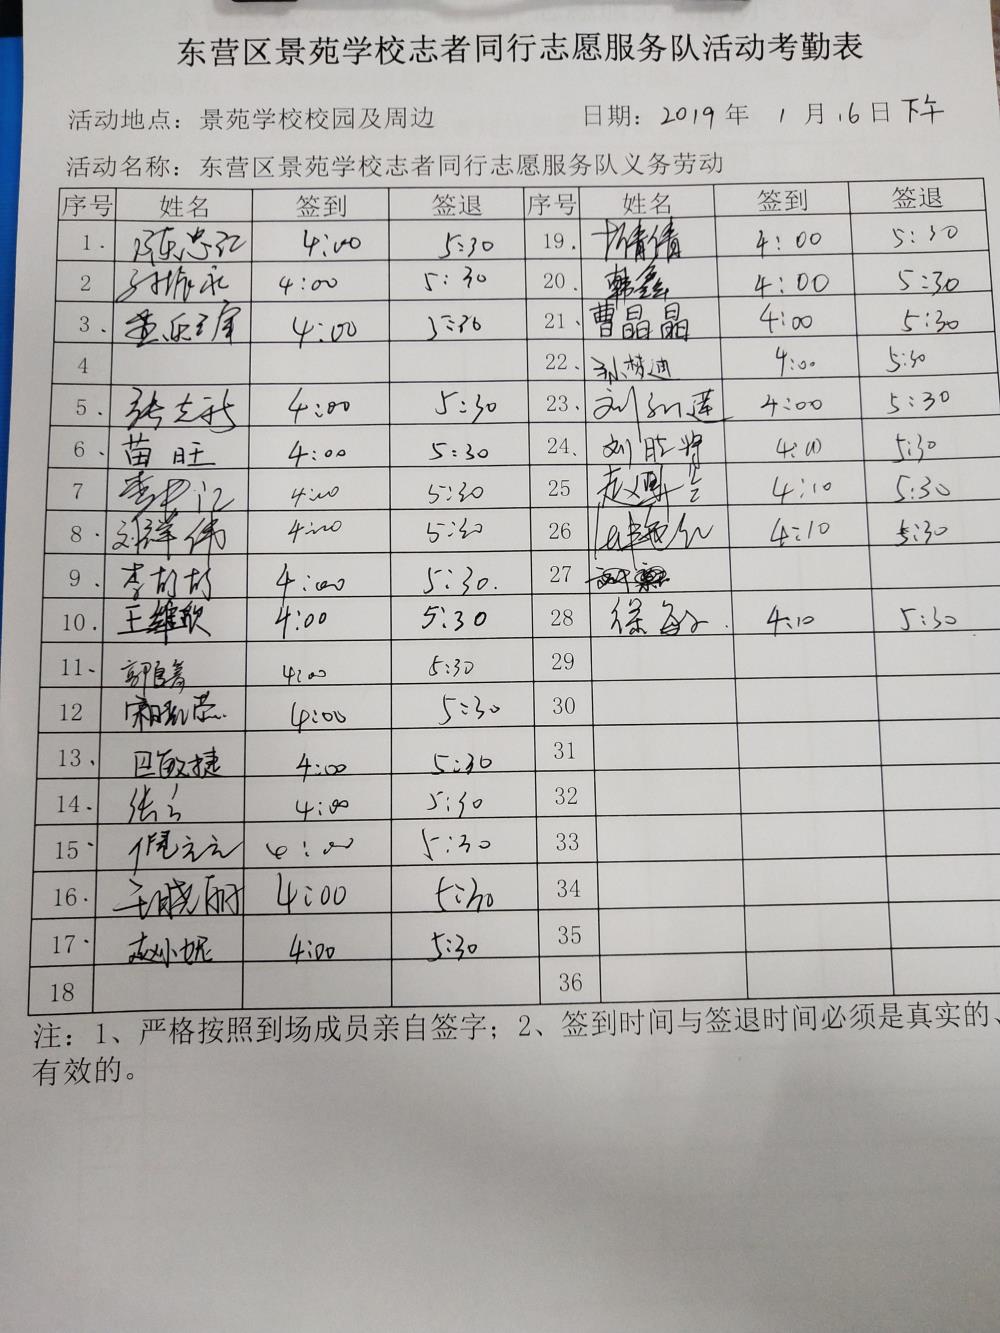 东营区景苑学校志者同行志愿服务队活动考勤表
活动地点：景苑学校校园及周边 日期：2019年 1月16日下午
活动名称：东营区景苑学校志者同行志愿服务队义务劳动
序号 姓名 签到 签退 序号 姓名 签到 签退
1. 4:00 5:30 19. 倩倩 4:00 5:30
2 孙振永 4:00 5:30 20. 韩鑫 4:00 5:30
3. 4:00 5:30 21. 曹晶晶 4:00 5:30
4 22. 孙梦迪 4:00 5:30
5. 张 4:00 5:30 23. 刘 莲 4:00 5:30
6. 苗旺 4:00 5:30 24. 刘 4:10 5:30
7 4:00 5:30 25 赵 4:10 5:30
8. 刘洋伟 4:00 5:30 26 4:10 5:30
9. 李胡胡 4:00 5:30. 27
10. 王维歌 4:00 5:30 28 徐敏 4:10 5:30
11. 郭 4:00 5:30 29
12 4:00 5:30 30
13. 巴敏捷 4:00 5:30 31
14. 张 4:00 5:30 32
15 倪元元 4:00 5:30 33
16. 王晓丽 4:00 5:30 34
17. 赵小妮 4:00 5:30 35
18 36
注：1、严格按照到场成员亲自签字；2、签到时间与签退时间必须是真实的、
有效的。